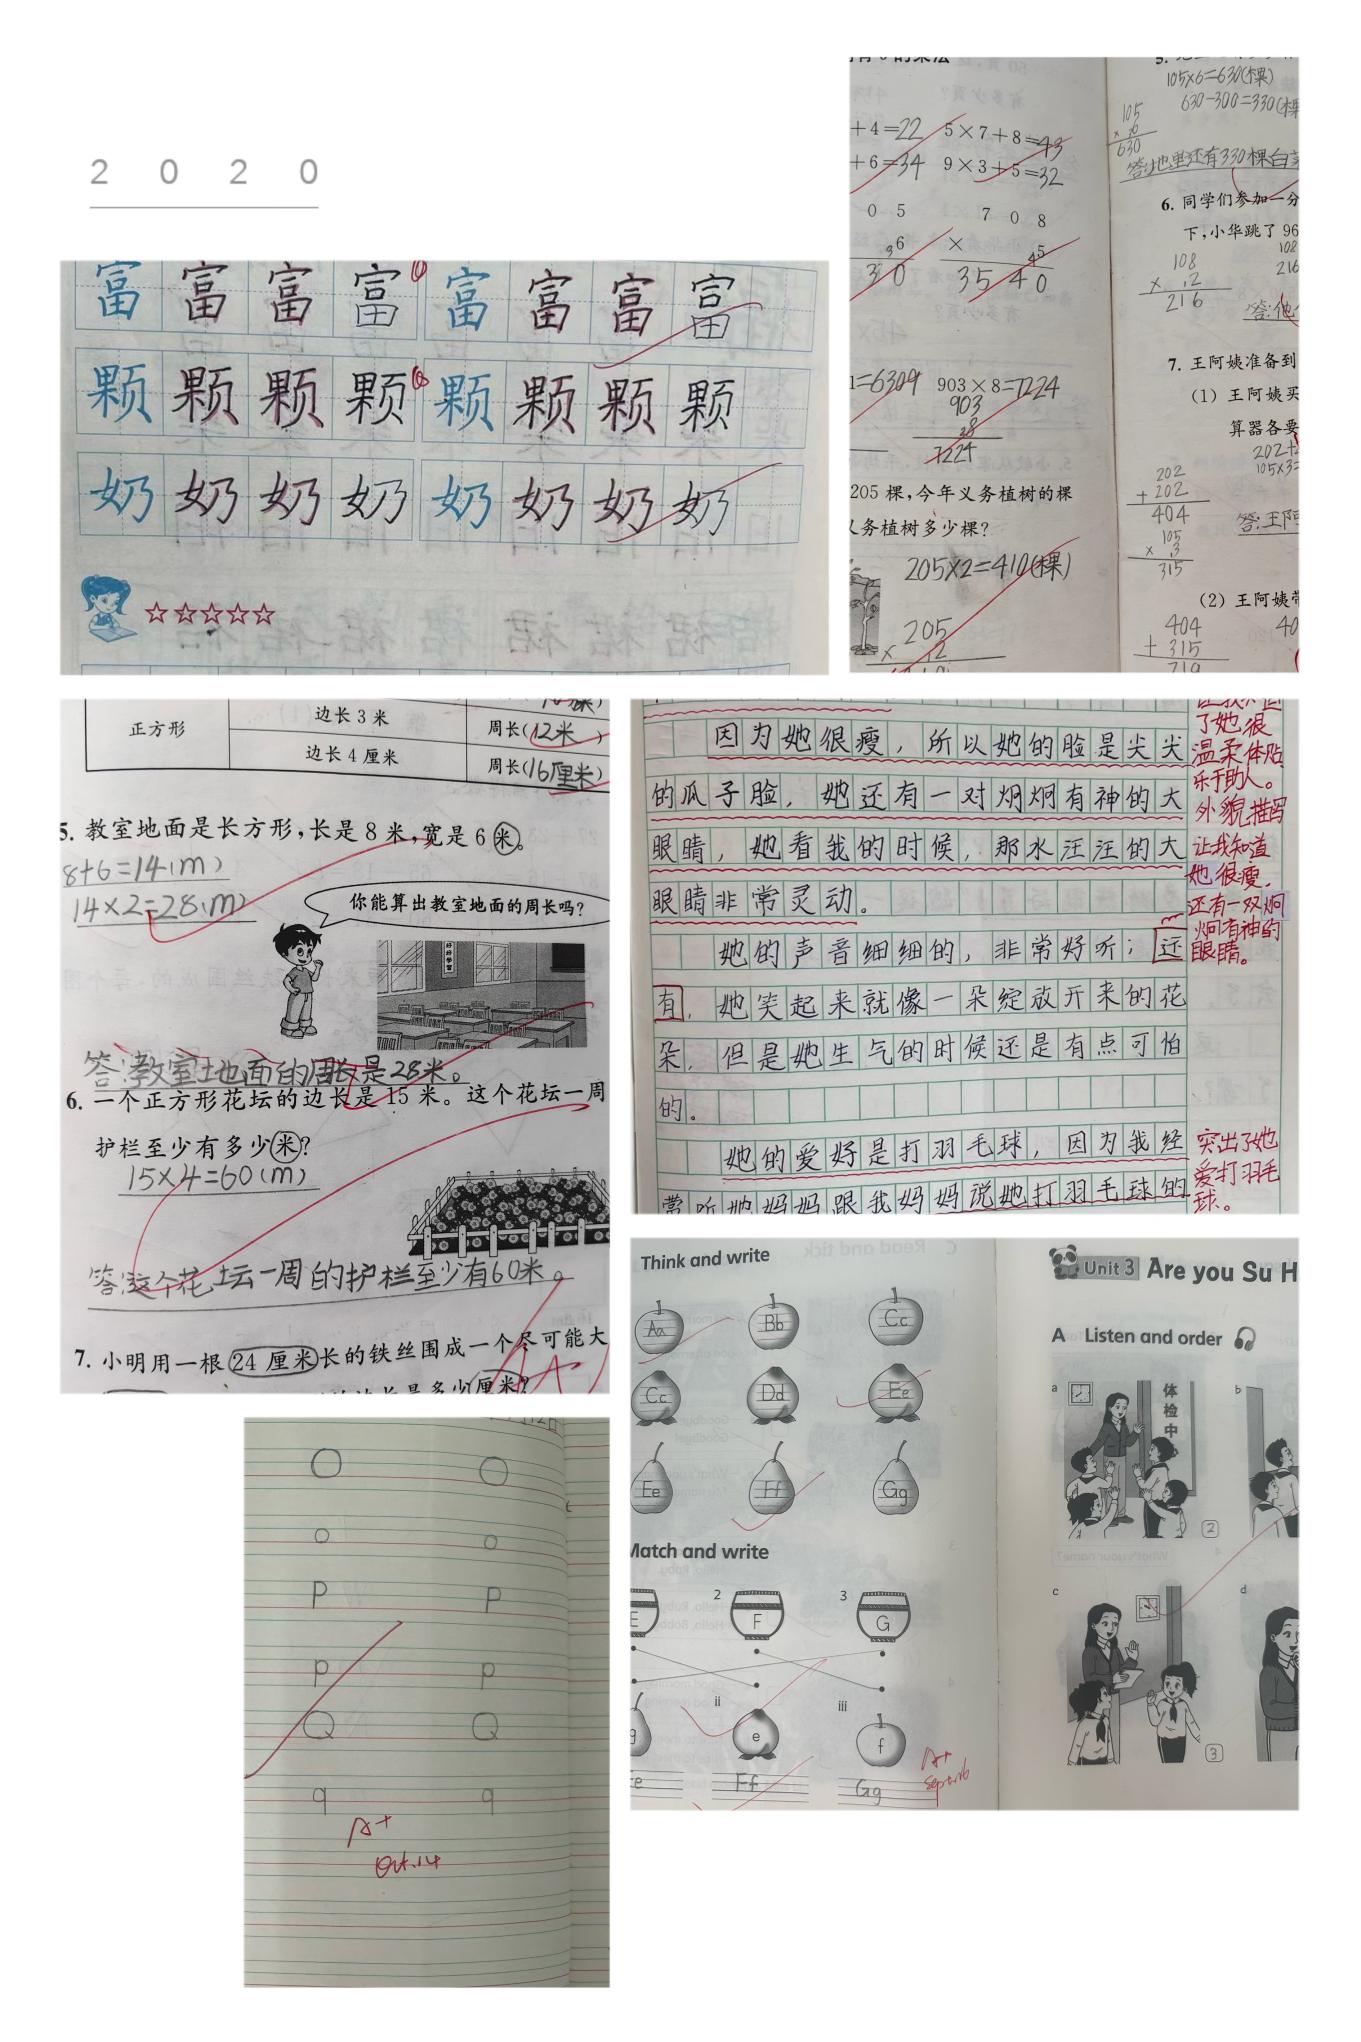 2020
富 富 富 富 富 富 富 富
颗 颗 颗 颗 颗 颗 颗 颗
奶 奶 奶 奶 奶 奶 奶 奶
+4=22 5×7+8=43
+6=34 9×3+5=32
0 5 7 0 8
6 × 5
3 0 3 5 4 0
1=6309 903×8=7224
903
8
7224
205 棵,今年义务植树的棵
务植树多少棵?
205×2=410(棵)
205
× 2
105×6=630(棵)
630-300=330(棵
105
× 6
630
答:地里还有330棵白菜
6. 同学们参加一分
下,小华跳了 96
108
108
× 2 216
216
答:他
7. 王阿姨准备到
(1) 王阿姨买
算器各要
202+
202 105×3=
+202
404 答:王阿
105
× 3
315
(2) 王阿姨带
404 40
+ 315
719
正方形
边长 3 米 周长(12米)
边长 4 厘米 周长(16厘米)
5. 教室地面是长方形,长是 8 米,宽是 6 米。
8+6=14(m)
14×2=28(m)
你能算出教室地面的周长吗?
好好学习
答:教室地面的周长是28米。
6. 一个正方形花坛的边长是 15 米。这个花坛一周
护栏至少有多少米?
15×4=60(m)
答:这个花坛一周的护栏至少有60米。
7. 小明用一根 24 厘米长的铁丝围成一个尽可能大
边长是多少厘米?
因为她很瘦,所以她的脸是尖尖
的瓜子脸,她还有一对炯炯有神的大
眼睛,她看我的时候,那水汪汪的大
眼睛非常灵动。
她的声音细细的,非常好听;还
有,她笑起来就像一朵绽放开来的花
朵,但是她生气的时候还是有点可怕
的。
她的爱好是打羽毛球,因为我经
常听她妈妈跟我妈妈说她打羽毛球的
了她很
温柔体贴
乐于助人。
外貌描写
让我知道
她很瘦,
还有一双炯
炯有神的
眼睛。
突出了她
爱打羽毛
球。
Think and write
Aa Bb Cc
Cc Dd Ee
Ee Ff Gg
Match and write
2 3
E F G
ii iii
g e f
Ee Ff Gg
A+
Unit 3 Are you Su H
A Listen and order
a b
体检中
2
c d
3
O O
o o
P P
p p
Q Q
q q
A+
Oct.14